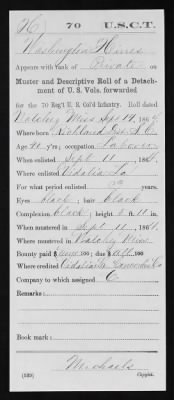 H | 70 | U.S.C.T.
Washington Hines
Appears with rank of Private on
Muster and Descriptive Roll of a Detachment
of U. S. Vols. forwarded
for the 70 Reg't U. S. Col'd Infantry. Roll dated
Natchez Miss Sept 17, 1864.
Where born Richland Dist. S.C.
Age 40 y'rs; occupation Laborer
When enlisted Sept 11, 1864.
Where enlisted Vidalia La
For what period enlisted years.
Eyes black; hair black
Complexion black; height 5 ft. 11 in.
When mustered in Sept 11, 1864.
Where mustered in Natchez Miss
Bounty paid $ 100; due $ 100
Where credited Vidalia Concordia La
Company to which assigned C
Remarks:
Book mark:
Michaels
(339) Copyist.